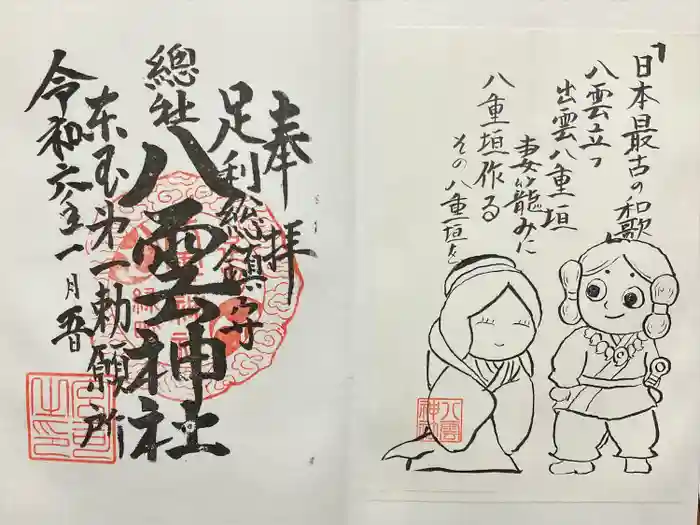 奉拝
足利総鎮守
總社
八雲神社
東国第一勅願所
令和六年一月吾
日本最古の和歌
八雲立つ
出雲八重垣
妻籠みに
八重垣作る
その八重垣を
八雲
神社